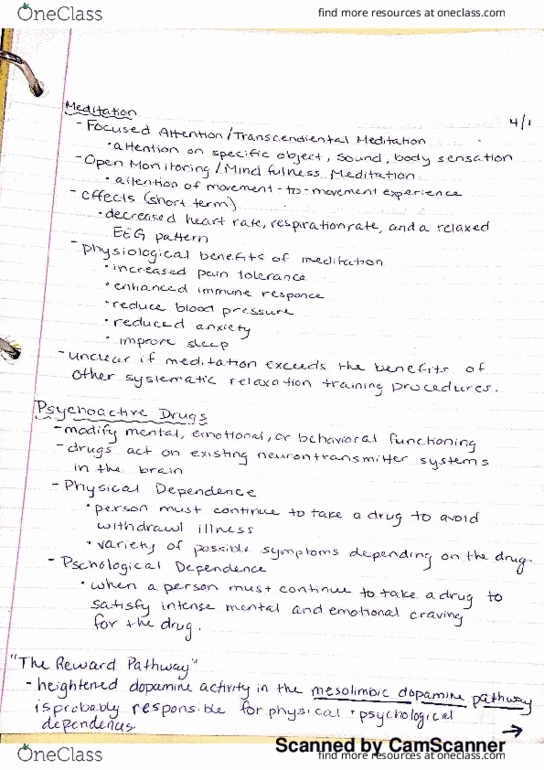 OneClass
find more resources at oneclass.com
4/1
Meditation
- Focused Attention/Transcendiental Meditation
• attention on specific object, sound, body sensation
- Open Monitoring/Mindfulness Meditation
• attention of movement-to-movement experience
- effects (short term)
• decreased heart rate, respiration rate, and a relaxed
EEG pattern
- physiological benefits of meditation
• increased pain tolerance
• enhanced immune responce
• reduce blood pressure
• reduced anxiety
• improve sleep
- unclear if meditation exceeds the benefits of
other systematic relaxation training procedures.
Psychoactive Drugs
- modify mental, emotional, or behavioral functioning
- drugs act on existing neurontransmitter systems
in the brain
- Physical Dependence
• person must continue to take a drug to avoid
withdrawl illness
• variety of possible symptoms depending on the drug.
- Pschological Dependence
• when a person must continue to take a drug to
satisfy intense mental and emotional craving
for the drug.
"The Reward Pathway"
- heightened dopamine activity in the mesolimbic dopamine pathway
is probably responsible for physical + psychological
→
Scanned by CamScanner
OneClass
find more resources at oneclass.com